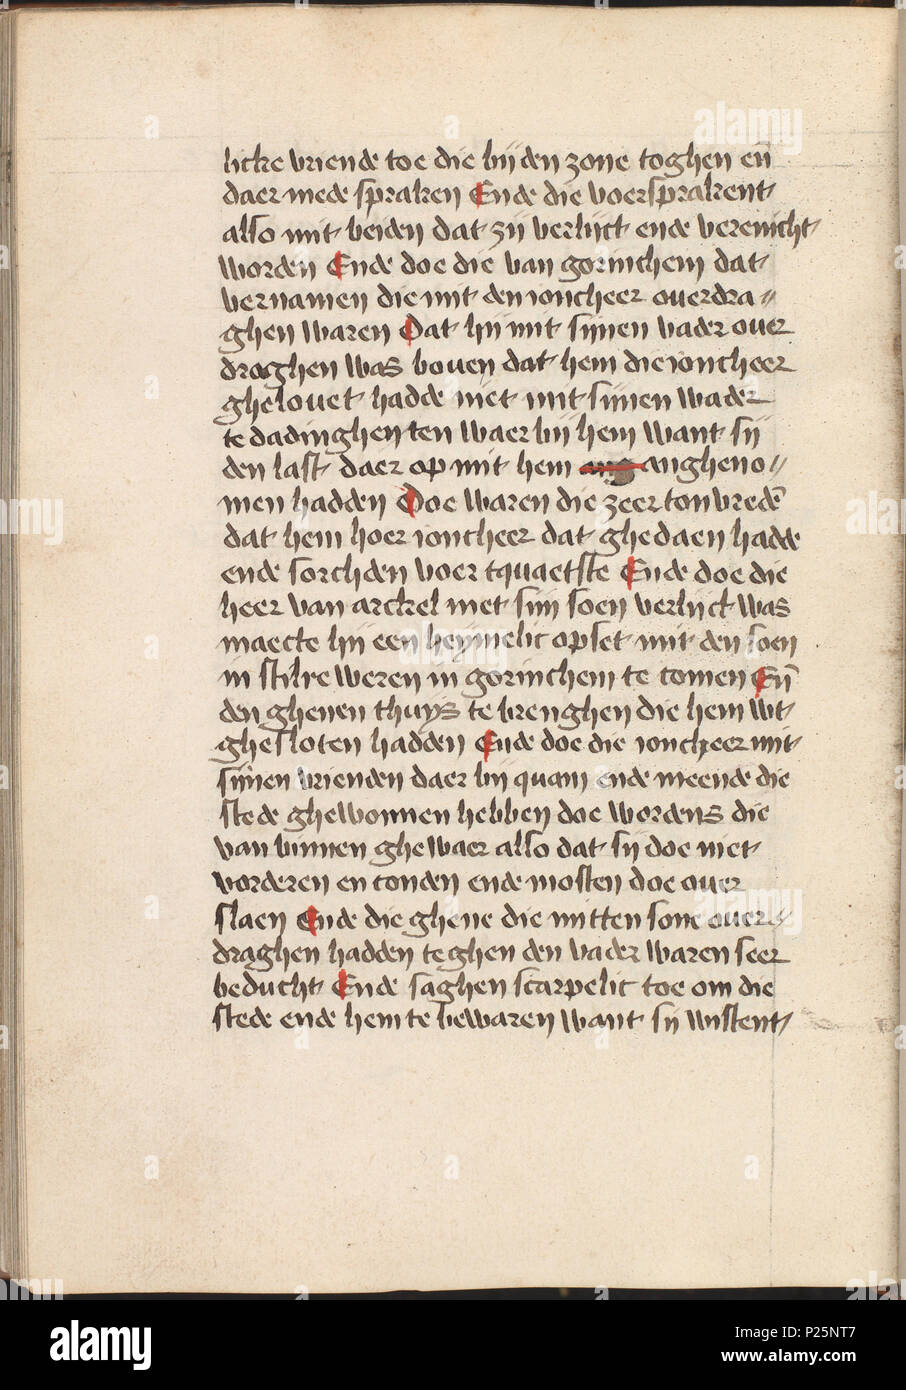 licke vriende toe die bij den zone toghen en̄
daer mede spraken Ende die voerspraken t
also mit beiden dat zij verlijct ende verenicht
worden Ende doe die van gorinchem dat
vernamen die mit den ioncheer ouerdra〃
ghen waren Dat hij mit sijnen vader ouer
draghen was bouen dat hem die ioncheer
ghelouet hadde niet mit sijnen vader
te dadinghen ten waer bij hem want sij
den last daer op mit hem angheno〃
men hadden Doe waren die zeer tonvredē
dat hem hoer ioncheer dat ghedaen hadde
ende sorchden voer tquaetste Ende doe die
heer van arckel met sijn soen verlijct was
maecte hij een heymelic opset mit den soen
in stilre weren in gorinchem te comen En̄
den ghenen thuys te brenghen die hem wt
ghesloten hadden Ende doe die ioncheer mit
sijnen vrienden daer bij quam ende meende die
stede ghewonnen hebben doe wordens die
van binnen ghewaer also dat sij doe niet
vorderen en conden ende mosten doe ouer
slaen Ende die ghene die mitten sone ouer〃
draghen hadden teghen den vader waren seer
beducht Ende saghen scarpelic toe om die
stede ende hem te bewaren want sij wistent
alamy
Image ID: P25NT7
www.alamy.com